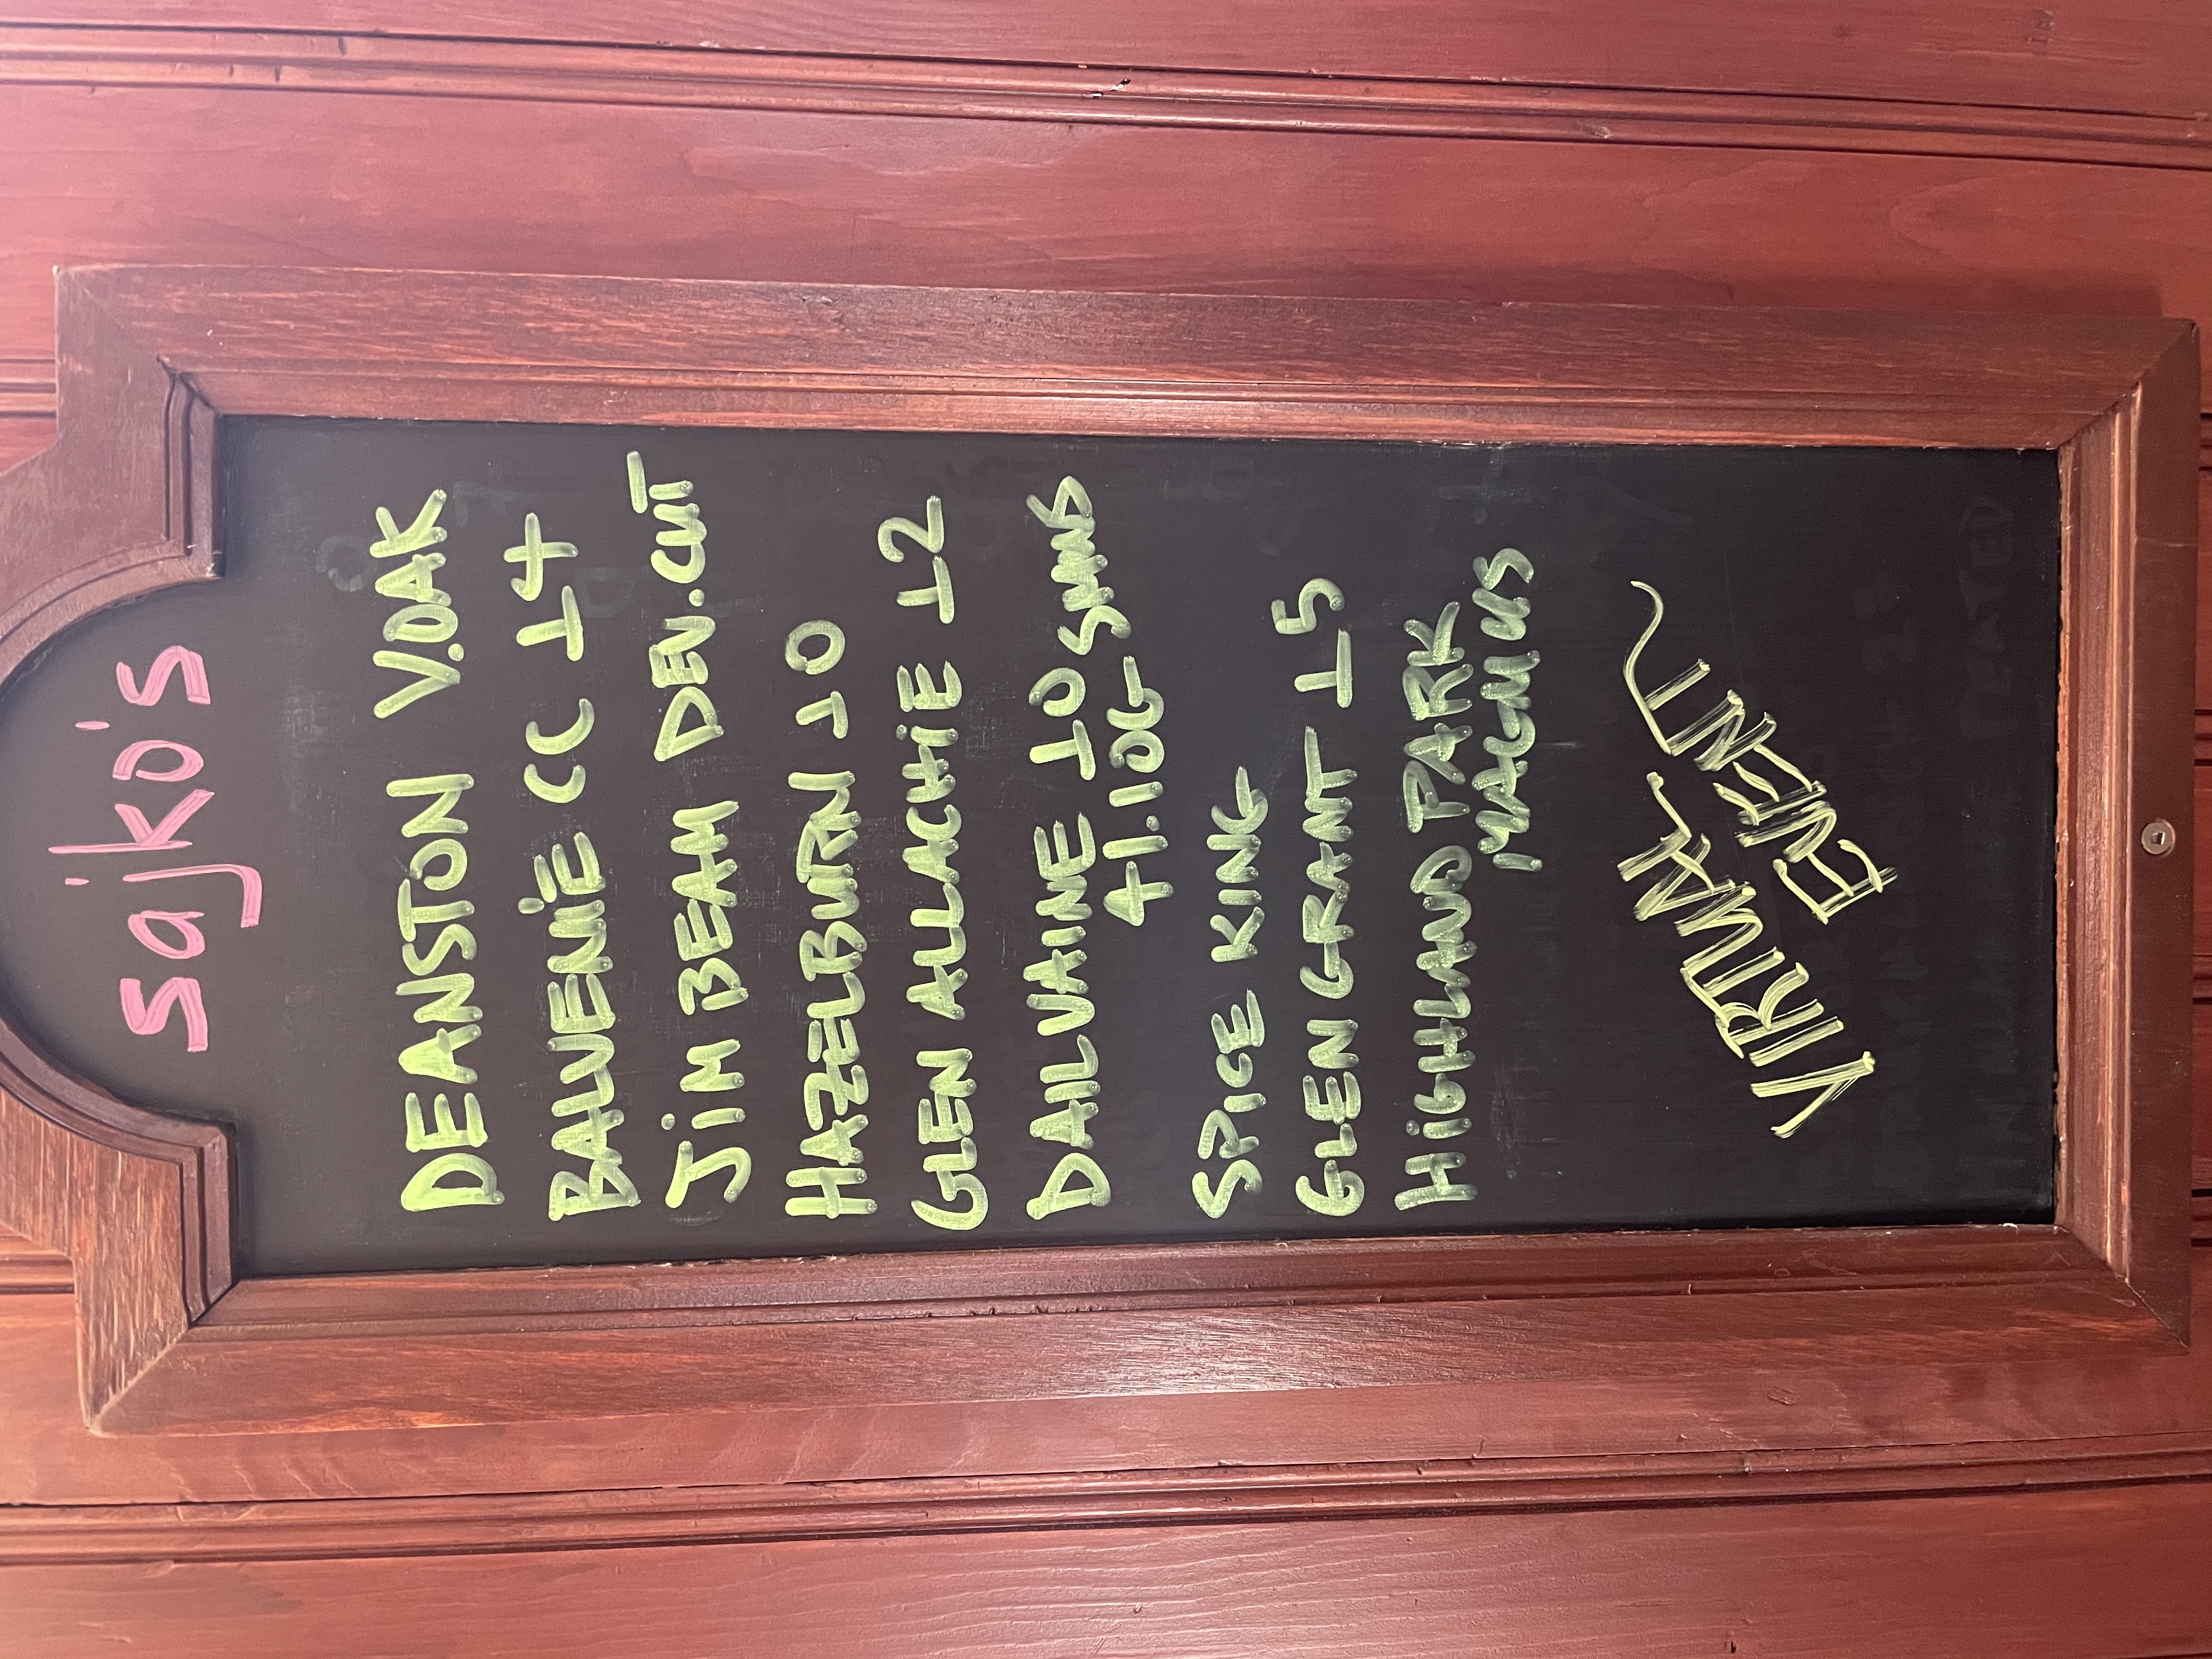 sajko's
DEANSTON V.OAK
BALVENiE CC 14
JiM BEAM DEV.CUT
HAZELBURN 10
GLEN ALLACHiE 12
DAILUAINE 10 SMWS
41.106
SPICE KING
GLEN GRANT 15
HiGHLAND PARK
MAGNUS
VIRTUAL
EVENT